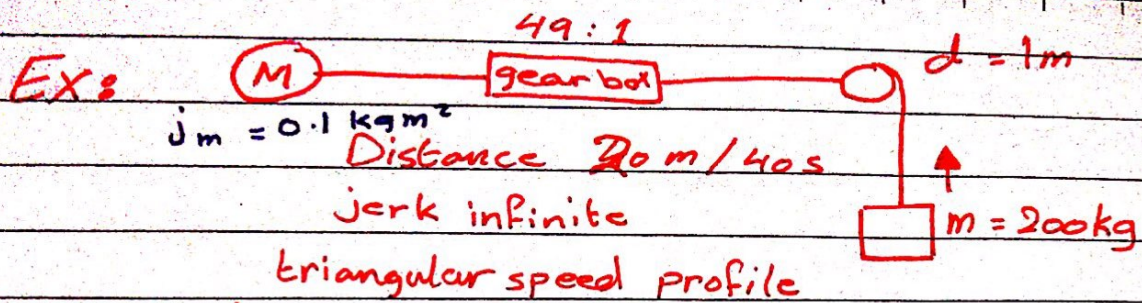 49 : 1
Ex: M gear box d = 1m
jm = 0.1 kgm²
Distance 20 m / 40s
jerk infinite
m = 200kg
triangular speed profile